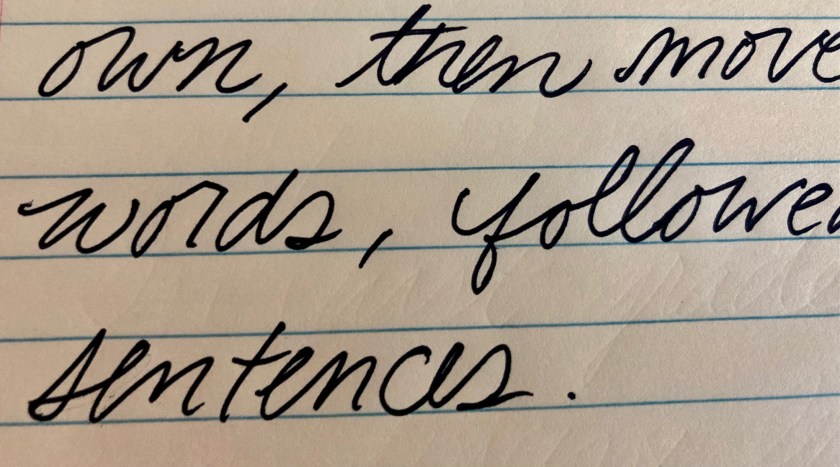 own, then move
words, followe
sentences.